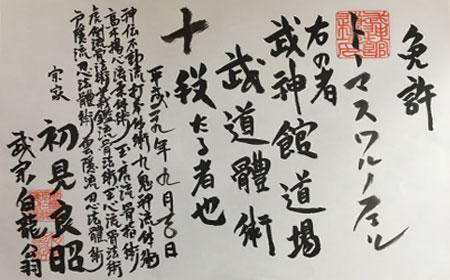 免許
トーマスワルノフェル
右の者
武神館道場
武道體術
十段たる者也
平成二九年九月吉日
神伝不動流打拳体術九鬼神流体術
高木揚心流柔体術玉虎流骨指術
虎倒流骨法術義鑑流骨法術玉心流骨法術
戸隠流忍法體術雲隠流忍法體術
宗家 初見良昭
武宗白龍翁